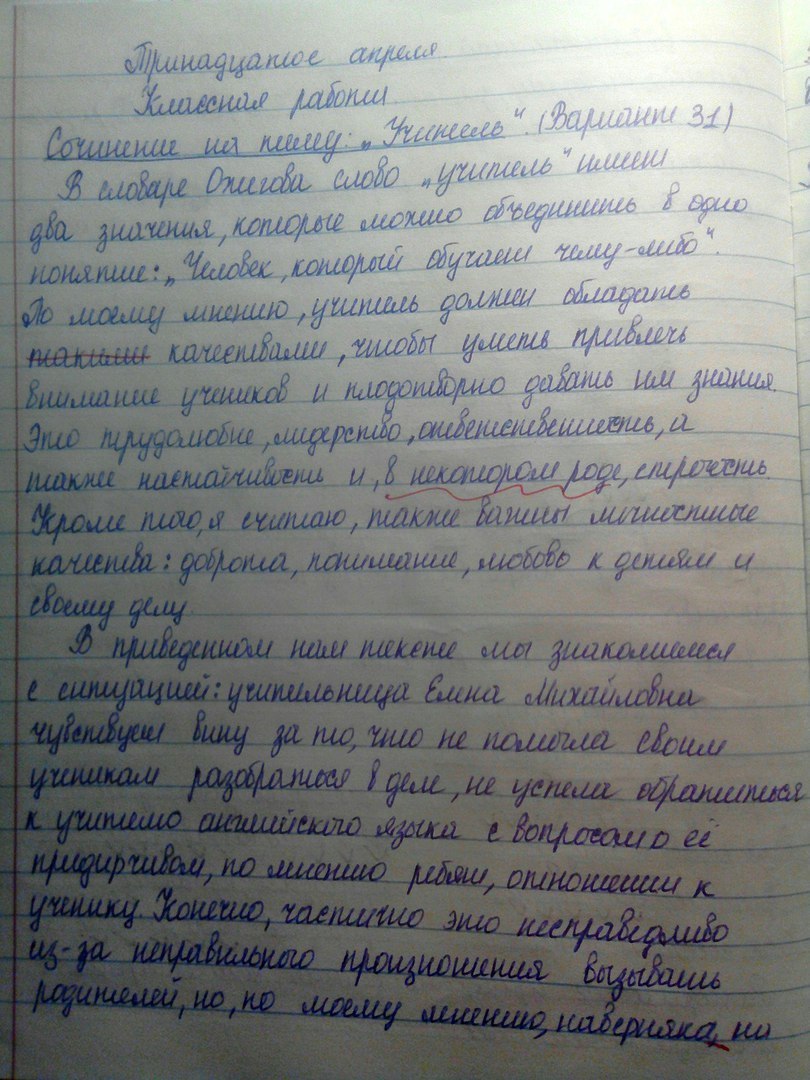 Тринадцатое апреля.
Классная работа
Сочинение на тему: „Учитель". (Вариант 31)
В словаре Ожегова слово „учитель" имеет
два значения, которые можно объединить в одно
понятие: „Человек, который обучает чему-либо".
По моему мнению, учитель должен обладать
такими качествами, чтобы уметь привлечь
внимание учеников и плодотворно давать им знания.
Это трудолюбие, лидерство, ответственность, а
также настойчивость и, в некотором роде, строгость.
Кроме того, я считаю, также важны личностные
качества: доброта, понимание, любовь к детям и
своему делу.
В приведенном нам тексте мы знакомимся
с ситуацией: учительница Елена Михайловна
чувствует вину за то, что не помогла своим
ученикам разобраться в деле, не успела обратиться
к учителю английского языка с вопросом о её
придирчивом, по мнению ребят, отношении к
ученику. Конечно, частично это несправедливо
из-за неправильного произношения вызывать
родителей, но, по моему мнению, наверняка, на